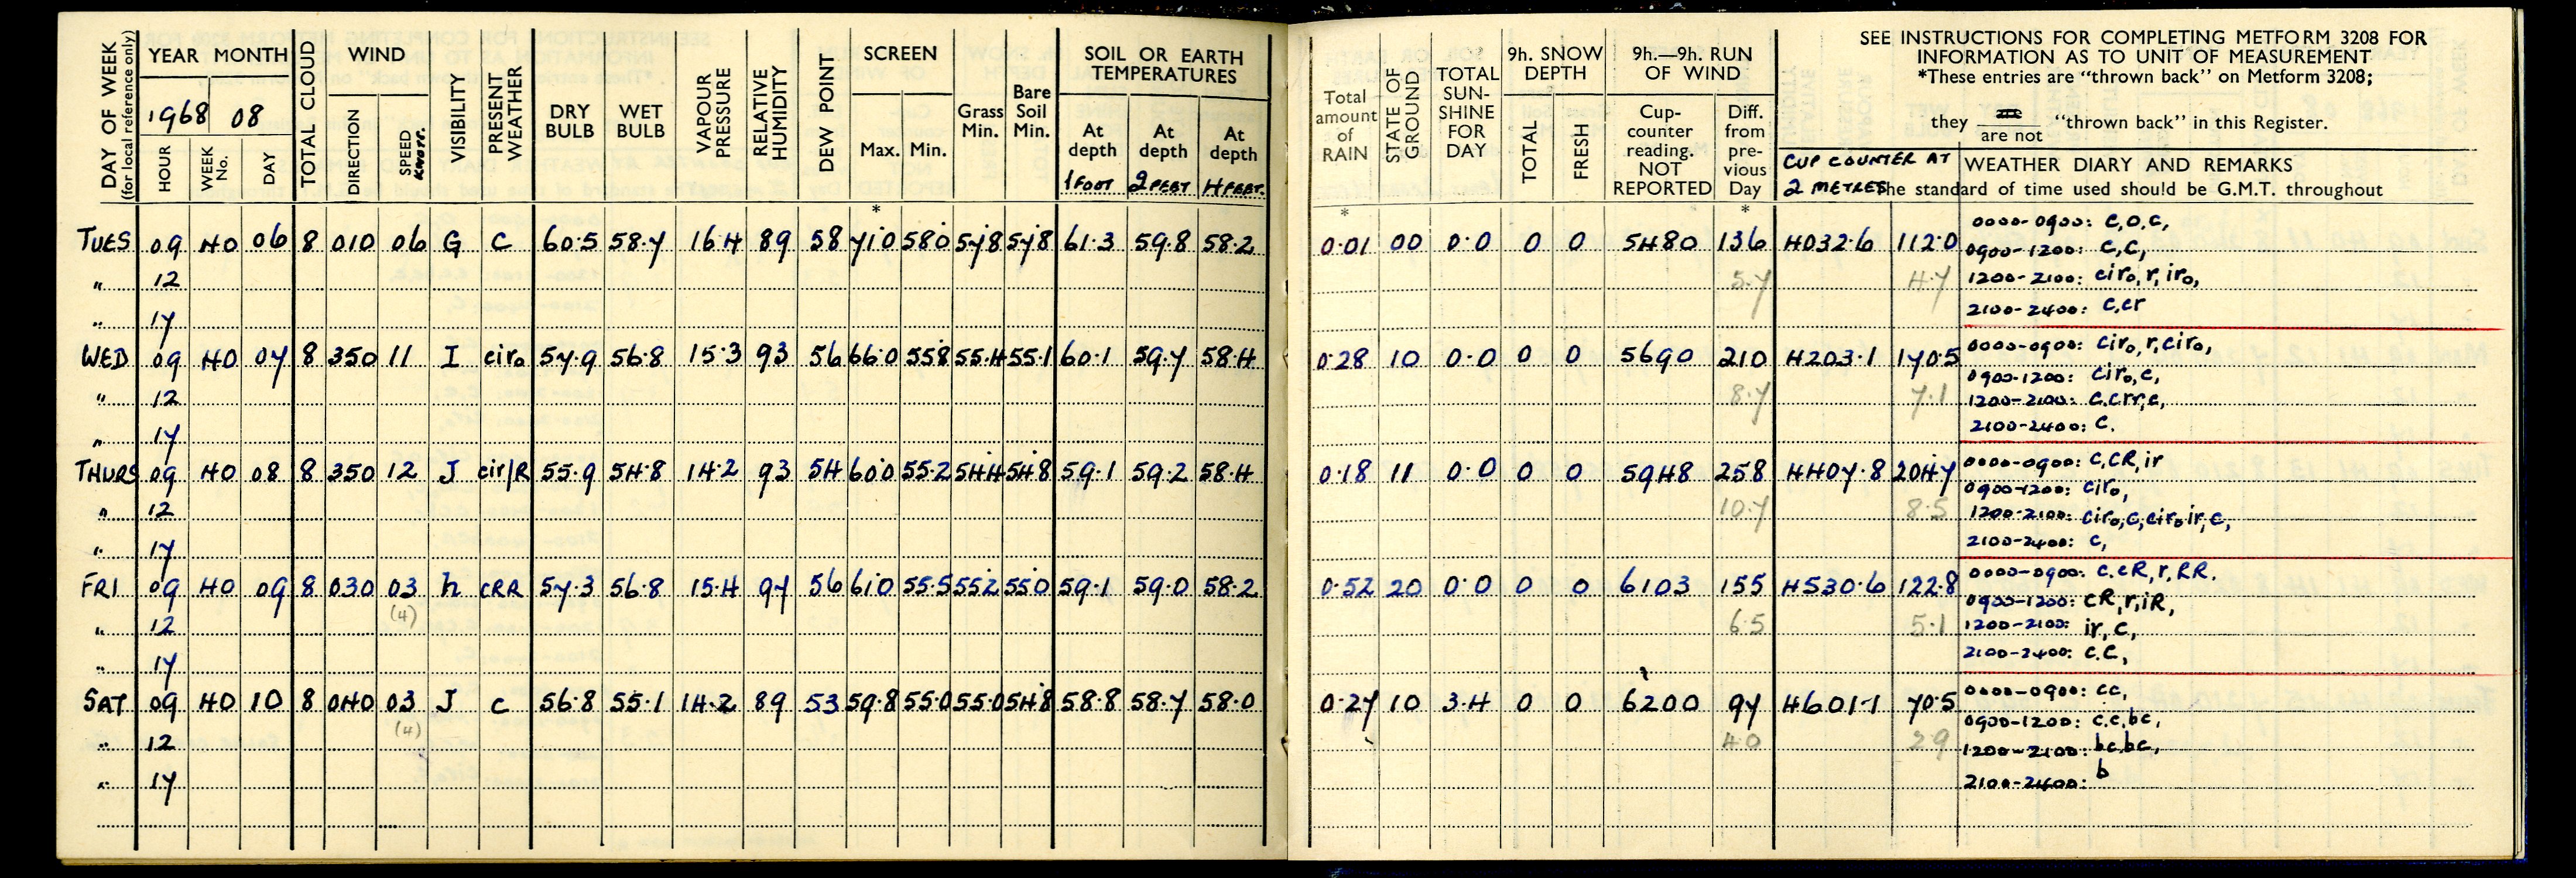 DAY OF WEEK
(for local reference only)
YEAR MONTH
1968 08
HOUR
WEEK No.
DAY
TOTAL CLOUD
WIND
DIRECTION
SPEED KNOTS.
VISIBILITY
PRESENT WEATHER
DRY BULB
WET BULB
VAPOUR PRESSURE
RELATIVE HUMIDITY
DEW POINT
SCREEN
Max. Min.
Grass Min.
Bare Soil Min.
SOIL OR EARTH TEMPERATURES
At depth 1 FOOT
At depth 2 FEET
At depth 4 FEET.
Total amount of RAIN
STATE OF GROUND
TOTAL SUN-SHINE FOR DAY
9h. SNOW DEPTH
TOTAL
FRESH
9h.—9h. RUN OF WIND
Cup-counter reading. NOT REPORTED
Diff. from pre-vious Day
SEE INSTRUCTIONS FOR COMPLETING METFORM 3208 FOR
INFORMATION AS TO UNIT OF MEASUREMENT
*These entries are "thrown back" on Metform 3208;
they are / are not "thrown back" in this Register.
CUP COUNTER AT 2 METRES
WEATHER DIARY AND REMARKS
The standard of time used should be G.M.T. throughout
* * *
TUES 09 40 06 8 010 06 G C 60.5 58.7 16.4 89 58 71.0 58.0 57.8 57.8 61.3 59.8 58.2 0.01 00 0.0 0 0 5480 136 4032.6 112.0 0000-0900: C,O,C,
0900-1200: C,C,
" 12 5.7 4.7 1200-2100: ciro,r,iro,
" 17 2100-2400: C.cr
WED 09 40 07 8 350 11 I ciro 57.9 56.8 15.3 93 56 66.0 55.8 55.4 55.1 60.1 59.7 58.4 0.28 10 0.0 0 0 5690 210 4203.1 170.5 0000-0900: ciro,r,ciro,
0900-1200: ciro,c,
" 12 8.7 7.1 1200-2100: c.crr,c,
" 17 2100-2400: C.
THURS 09 40 08 8 350 12 J cir/R 55.9 54.8 14.2 93 54 60.0 55.2 54.4 54.8 59.1 59.2 58.4 0.18 11 0.0 0 0 5948 258 4407.8 204.7 0000-0900: C,CR,ir
0900-1200: ciro,
" 12 10.7 8.5 1200-2100: ciro,c,ciro,ir,c,
" 17 2100-2400: c,
FRI 09 40 09 8 030 03 h cRR 57.3 56.8 15.4 97 56 61.0 55.5 55.2 55.0 59.1 59.0 58.2 0.52 20 0.0 0 0 6103 155 4530.6 122.8 0000-0900: c.cR,r,RR.
(4) 0900-1200: cR,r,iR,
" 12 6.5 5.1 1200-2100: ir, c,
" 17 2100-2400: c.c,
SAT 09 40 10 8 040 03 J c 56.8 55.1 14.2 89 53 59.8 55.0 55.0 54.8 58.8 58.7 58.0 0.27 10 3.4 0 0 6200 97 4601.1 70.5 0000-0900: cc,
(4) 0900-1200: c.c,bc,
" 12 4.0 2.9 1200-2100: bc,bc,
" 17 2100-2400: b